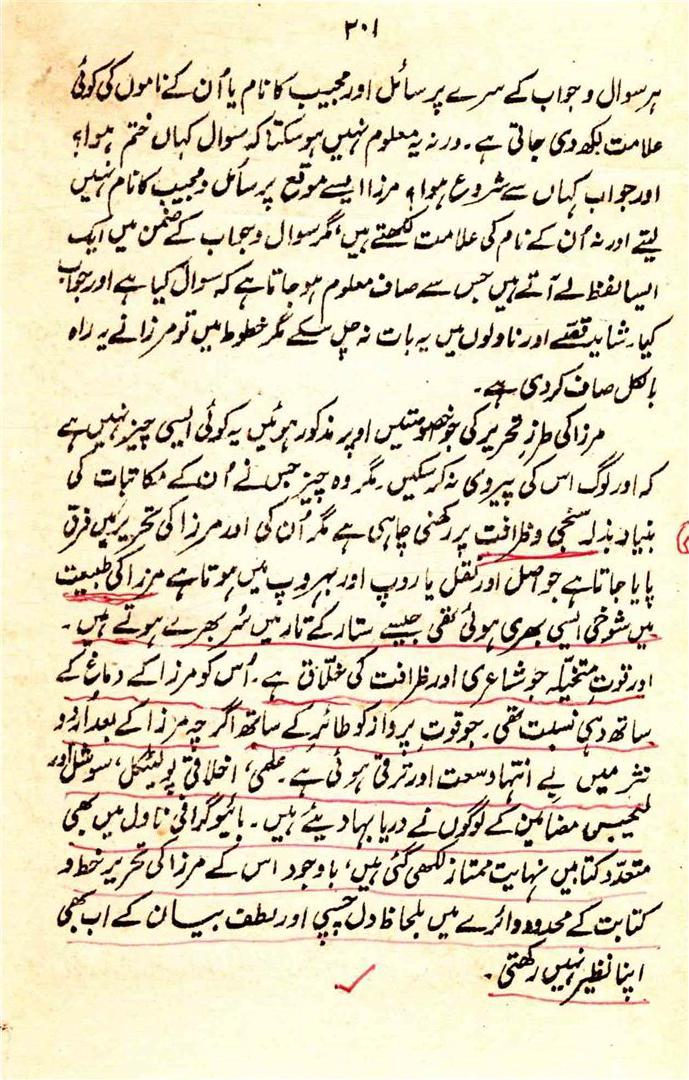 ۲۰۱
ہر سوال و جواب کے سرے پر سائل اور مجیب کا نام یا اُن کے ناموں کی کوئی
علامت لکھ دی جاتی ہے۔ ورنہ یہ معلوم نہیں ہو سکتا کہ سوال کہاں ختم ہوا؟
اور جواب کہاں سے شروع ہوا؟ مرزا ایسے موقع پر سائل و مجیب کا نام نہیں
لیتے اور نہ اُن کے نام کی علامت لکھتے ہیں، مگر سوال و جواب کے ضمن میں ایک
ایسا لفظ لے آتے ہیں جس سے صاف معلوم ہو جاتا ہے کہ سوال کیا ہے اور جواب
کیا۔ شاید قصّے اور ناولوں میں یہ بات نہ چل سکے مگر خطوط میں تو مرزا نے یہ راہ
بالکل صاف کر دی ہے۔
مرزا کی طرزِ تحریر کی جو خصوصیتیں اوپر مذکور ہوئیں یہ کوئی ایسی چیز نہیں ہے
کہ اور لوگ اس کی پیروی نہ کر سکیں۔ مگر وہ چیز جس نے اُن کے مکاتبات کی
بنیاد بذلہ سنجی و ظرافت پر رکھنی چاہی ہے مگر اُن کی اور مرزا کی تحریر میں فرق
پایا جاتا ہے جو اصل اور نقل یا روپ اور بہروپ میں ہوتا ہے مرزا کی طبیعت
میں شوخی ایسی بھری ہوئی تھی جیسے ستار کے تار میں سُر بھرے ہوتے ہیں۔
اور قوتِ متخیّلہ جو شاعری اور ظرافت کی خلّاق ہے۔ اُس کو مرزا کے دماغ کے
ساتھ وہی نسبت تھی۔ جو قوتِ پرواز کو طائر کے ساتھ اگر چہ مرزا کے بعد اُردو
نثر میں بے انتہا وسعت اور ترقی ہوئی ہے۔ علمی، اخلاقی پولیٹکل، سوشل اور
مضامین کے لوگوں نے دریا بہا دیئے ہیں۔ بائیوگرافی ناول میں بھی
متعدّد کتابیں نہایت ممتاز لکھی گئی ہیں، باوجود اس کے مرزا کی تحریر خط و
کتابت کے محدود دائرے میں بلحاظ دل چسپی اور لطف بیان کے اب بھی
اپنا نظیر نہیں رکھتی۔